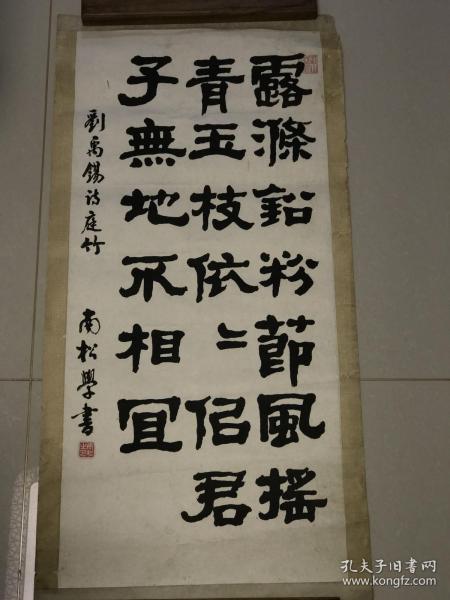 露滌鉛粉節風搖
青玉枝依〻似君
子無地不相宜
劉禹錫詩庭竹
南松學書
孔夫子旧书网
www.kongfz.com